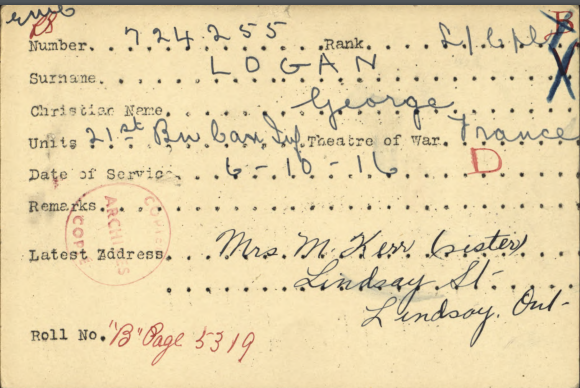 Number. 724255 Rank L/Cpl. B
Surname. LOGAN
Christian Name. George
Units 21st Bn Can Inf Theatre of War. France
Date of Service. 6-10-16 D
Remarks.
COPIED
ARCHIVES
COPIE
Latest Address. Mrs. M. Kerr (sister)
Lindsay St-
Lindsay. Ont-
Roll No. "B" Page 5319